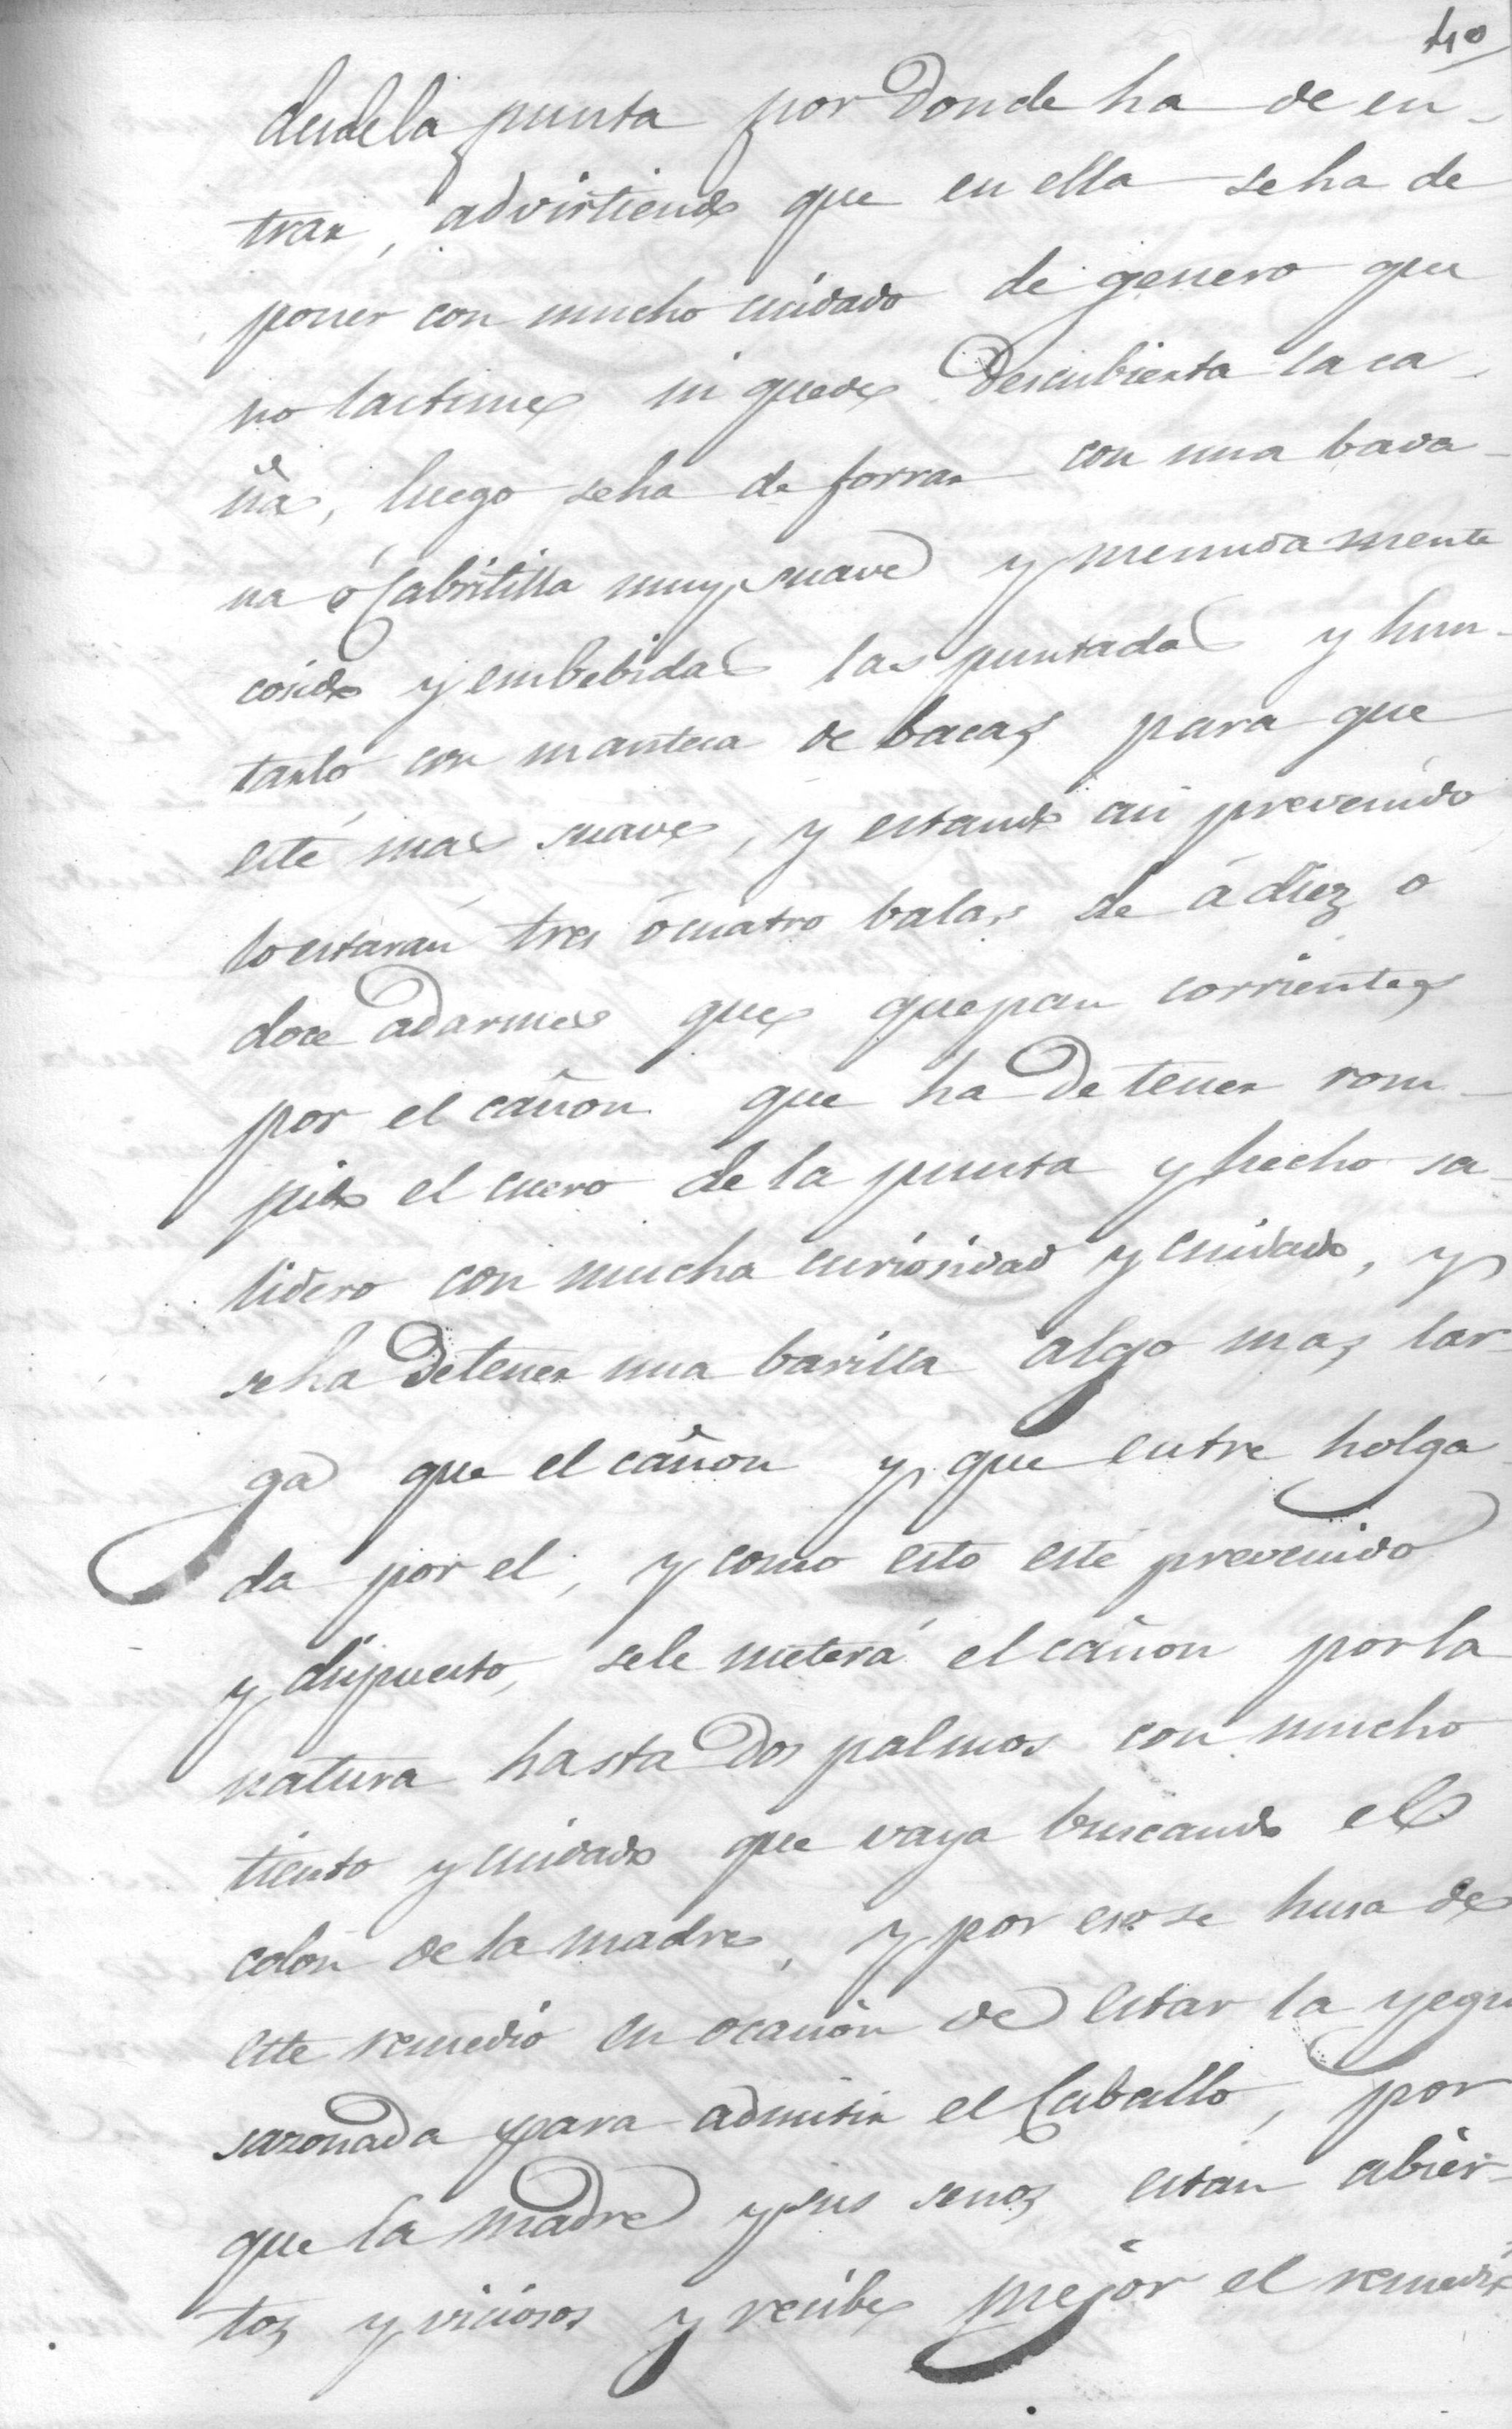 40
desdela punta por Donde ha de en-
trar, advirtiendo que en ella seha de
poner con mucho cuidado de genero que
no lastime ni quede Descubierta la ca-
ña, luego seha de forrar con una bada-
na ó Cabritilla muy suave y menudamente
cosido y embebidas las puntadas y hun-
tarlo con manteca de bacas para que
esté mas suave, y estando asi prevenido
lo estarán tres ó cuatro balas de á diez o
doce adarmes que quepan corrientes
por el cañon que ha De tener rom-
pido el cuero de la punta y hecho sa-
lidero con mucha curiosidad y cuidado, y
seha Detener una barilla algo mas lar-
ga que el cañon y que entre holga-
da por el, y como esto esté prevenido
y dispuesto, sele meterá el cañon porla
natura hasta Dos palmos con mucho
tiento y cuidado que vaya buscando el
colon de la madre, y por eso se husa de
este remedio en ocasión de estar la yegua
sazonada para admitir el Caballo, por
que la madre y sus senos estan abier-
tos y viciosos y recibe mejor el remedio